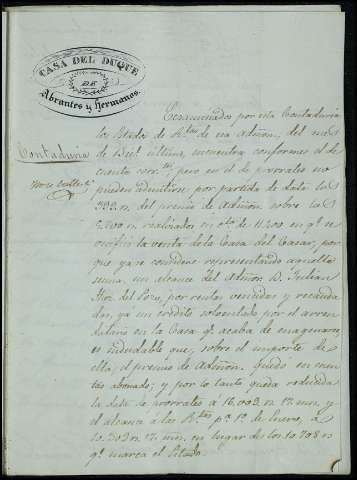 CASA DEL DUQUE
DE
Abrantes y hermanos.
Contaduria
Ecsaminados por esta Contaduria
los Estados de de esa Admon, del mes
de última, encuentra conformes el de
cuenta pero en el de prorrateo no
pueden admitirse por partida de data los
592 rs. del premio de Admon sobre los
realizados en de 11.200 en qe se
la venta de la Casa del Casar, por
que ya se considere representando aquella
suma, un alcance del Admor D. Julian
del Pozo, por rentas vencidas y recauda
das, ya un credito solventado por el arren
datario en la Casa qe acaba de enagenarse,
es indudable que, sobre el importe de
ella, el premio de Admon quedó en
tas abonado; y por lo tanto queda reducida
la data de prorrateo á 16.002 rs. 17 mrs. y
el alcance á las pa. 1º de Enero, á
10.302 rs 17 mrs. en lugar de los 10.708 rs
qe marca el Estado.